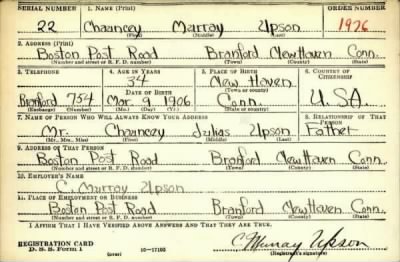 SERIAL NUMBER 1. NAME (Print) ORDER NUMBER
22 Chauncey Murray Upson 1926
(First) (Middle) (Last)
2. ADDRESS (Print)
Boston Post Road Branford New Haven Conn.
(Number and street or R. F. D. number) (Town) (County) (State)
3. TELEPHONE 4. AGE IN YEARS 5. PLACE OF BIRTH 6. COUNTRY OF CITIZENSHIP
34 New Haven
DATE OF BIRTH (Town or county)
Branford 754 Mar. 9 1906 Conn. U.S.A.
(Exchange) (Number) (Mo.) (Day) (Yr.) (State or country)
7. NAME OF PERSON WHO WILL ALWAYS KNOW YOUR ADDRESS 8. RELATIONSHIP OF THAT PERSON
Mr. Chauncey Julius Upson Father
(Mr., Mrs., Miss) (First) (Middle) (Last)
9. ADDRESS OF THAT PERSON
Boston Post Road Branford New Haven Conn.
(Number and street or R. F. D. number) (Town) (County) (State)
10. EMPLOYER'S NAME
C. Murray Upson
11. PLACE OF EMPLOYMENT OR BUSINESS
Boston Post Road Branford New Haven Conn.
(Number and street or R. F. D. number) (Town) (County) (State)
I AFFIRM THAT I HAVE VERIFIED ABOVE ANSWERS AND THAT THEY ARE TRUE.
REGISTRATION CARD
D. S. S. Form 1 16—17105 C Murray Upson
(over) (Registrant's signature)